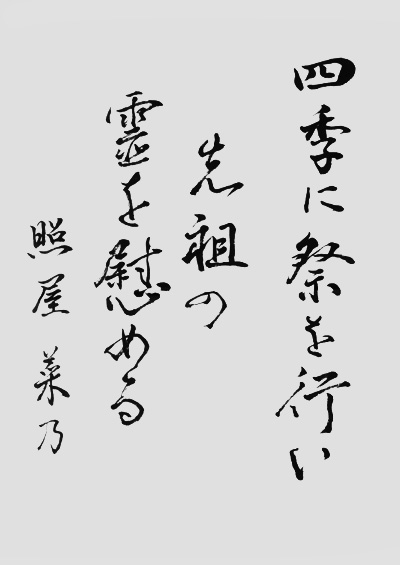 四季に祭を行い
先祖の
霊を慰める
照屋菜乃